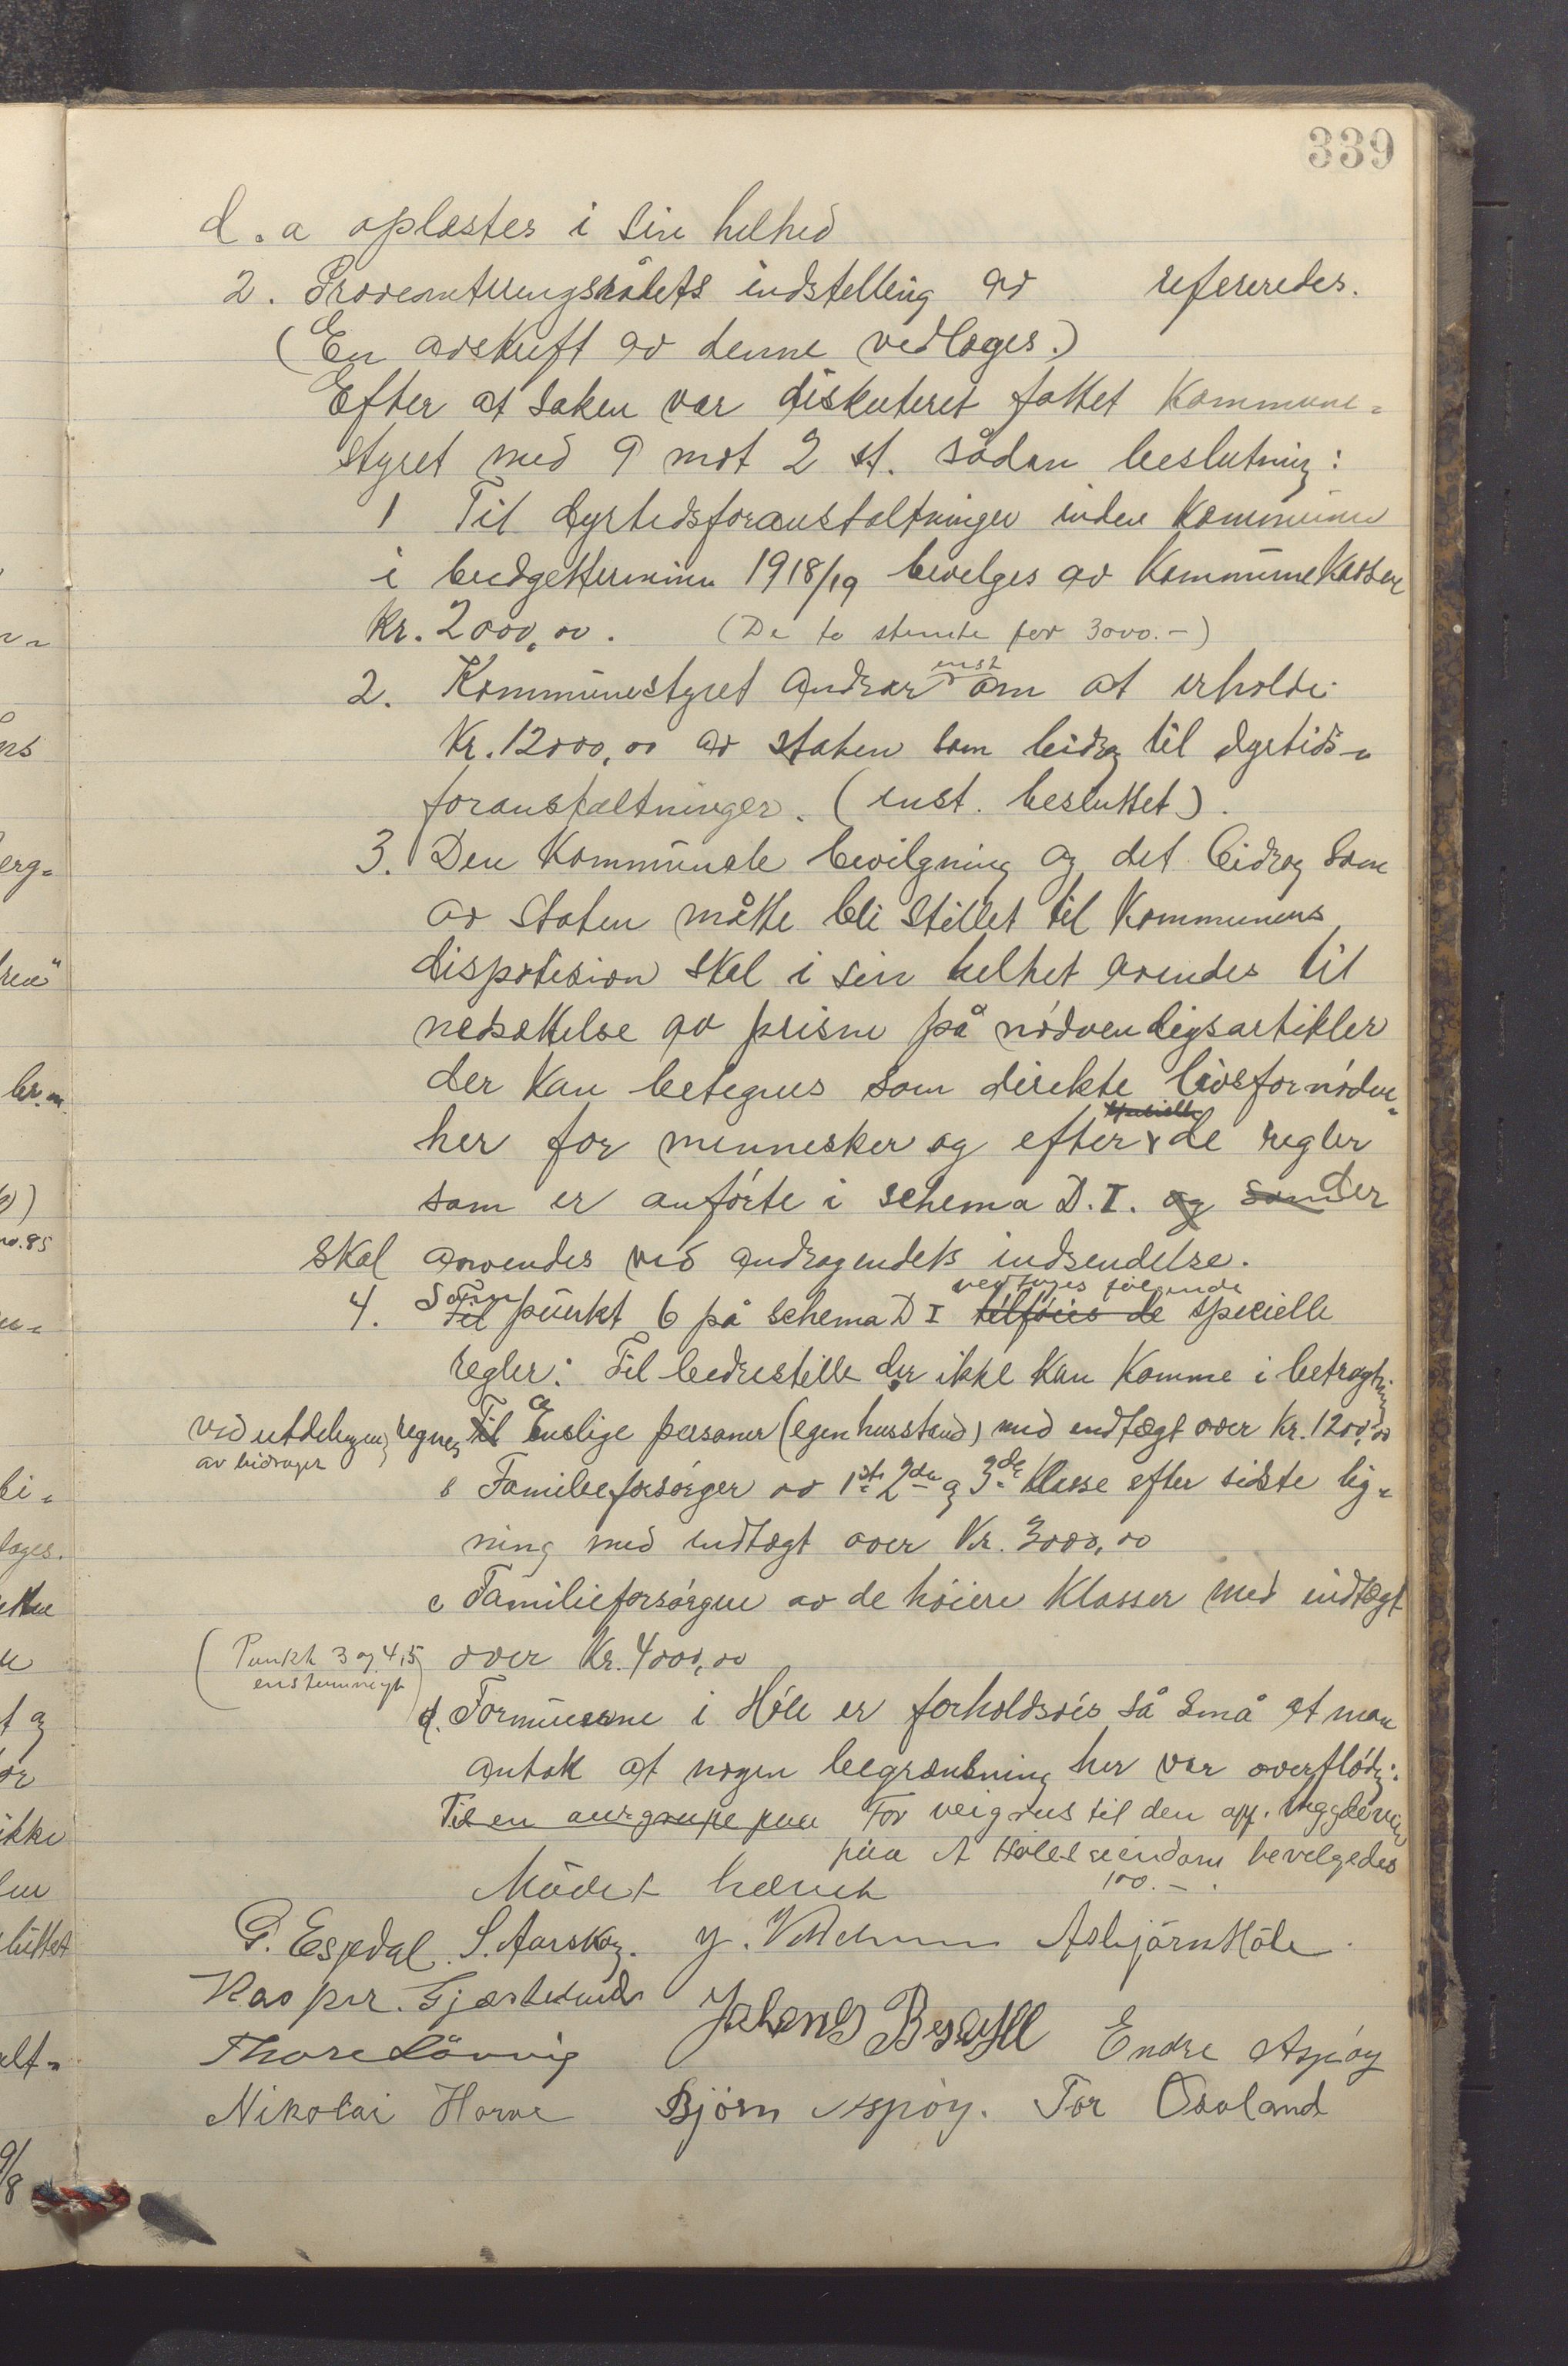 339
d. a oplæstes i sin helhed
2. Provianteringsrådets indstelling av refereredes.
(En avskrift av denne vedlages.)
Efter at saken var diskuteret fattet Kommune-
styret med 9 mot 2 st. sådan beslutning:
1 Til dyrtidsforanstaltninger inden Kommunen
i budgetterminen 1918/19 bevilges av Kommunekassen
Kr. 2000,00. (De to stemte for 3000.-)
2. Kommunestyret andrar enst om at erholde
Kr. 12000,00 av staten som bidrag til dyrtids-
foranstaltninger. (enst. besluttet).
3. Den Kommunale bevilgning og det bidrag som
av Staten måtte bli stillet til Kommunens
disposision skal i sin helhet anvendes til
nedsættelse av prisene på nødvendigsartikler
der kan betegnes som direkte livsfornøden-
her for mennesker og efter de regler
som er anførte i schema D.I. og som der
skal anvendes ved andragendets indsendelse.
4. Til Som punkt 6 på schema D I tilføies de vedtages følgende specielle
regler: Til bedrestilte der ikke kan komme i betragtning
ved utdelingen av bidraget regnes Til a Enslige personer (egen husstand) med indtægt over Kr. 1200,00
b Familieforsørger av 1ste 2den og 3de Klasse efter sidste lig-
ning med indtægt over Kr. 3000,00
c Familieforsørgere av de høiere Klasser med indtægt
over Kr. 4000,00
(Punkt 3 og 4, 5
enstemmigt)
d. Formuerne i Høle er forholdsvis så små at man
antok at nogen begrænsning her var overflødig.
Til en For til den opf.
paa A Høles eiendom bevilgedes
100.-.
Mødet hævet
G. Espdal. S. Aarskog. Asbjørn Høle.
Kaspar.
Thore Lønning Endre Aspøy
Nikolai Horve Bjørn Aspøy. Tor Osaland